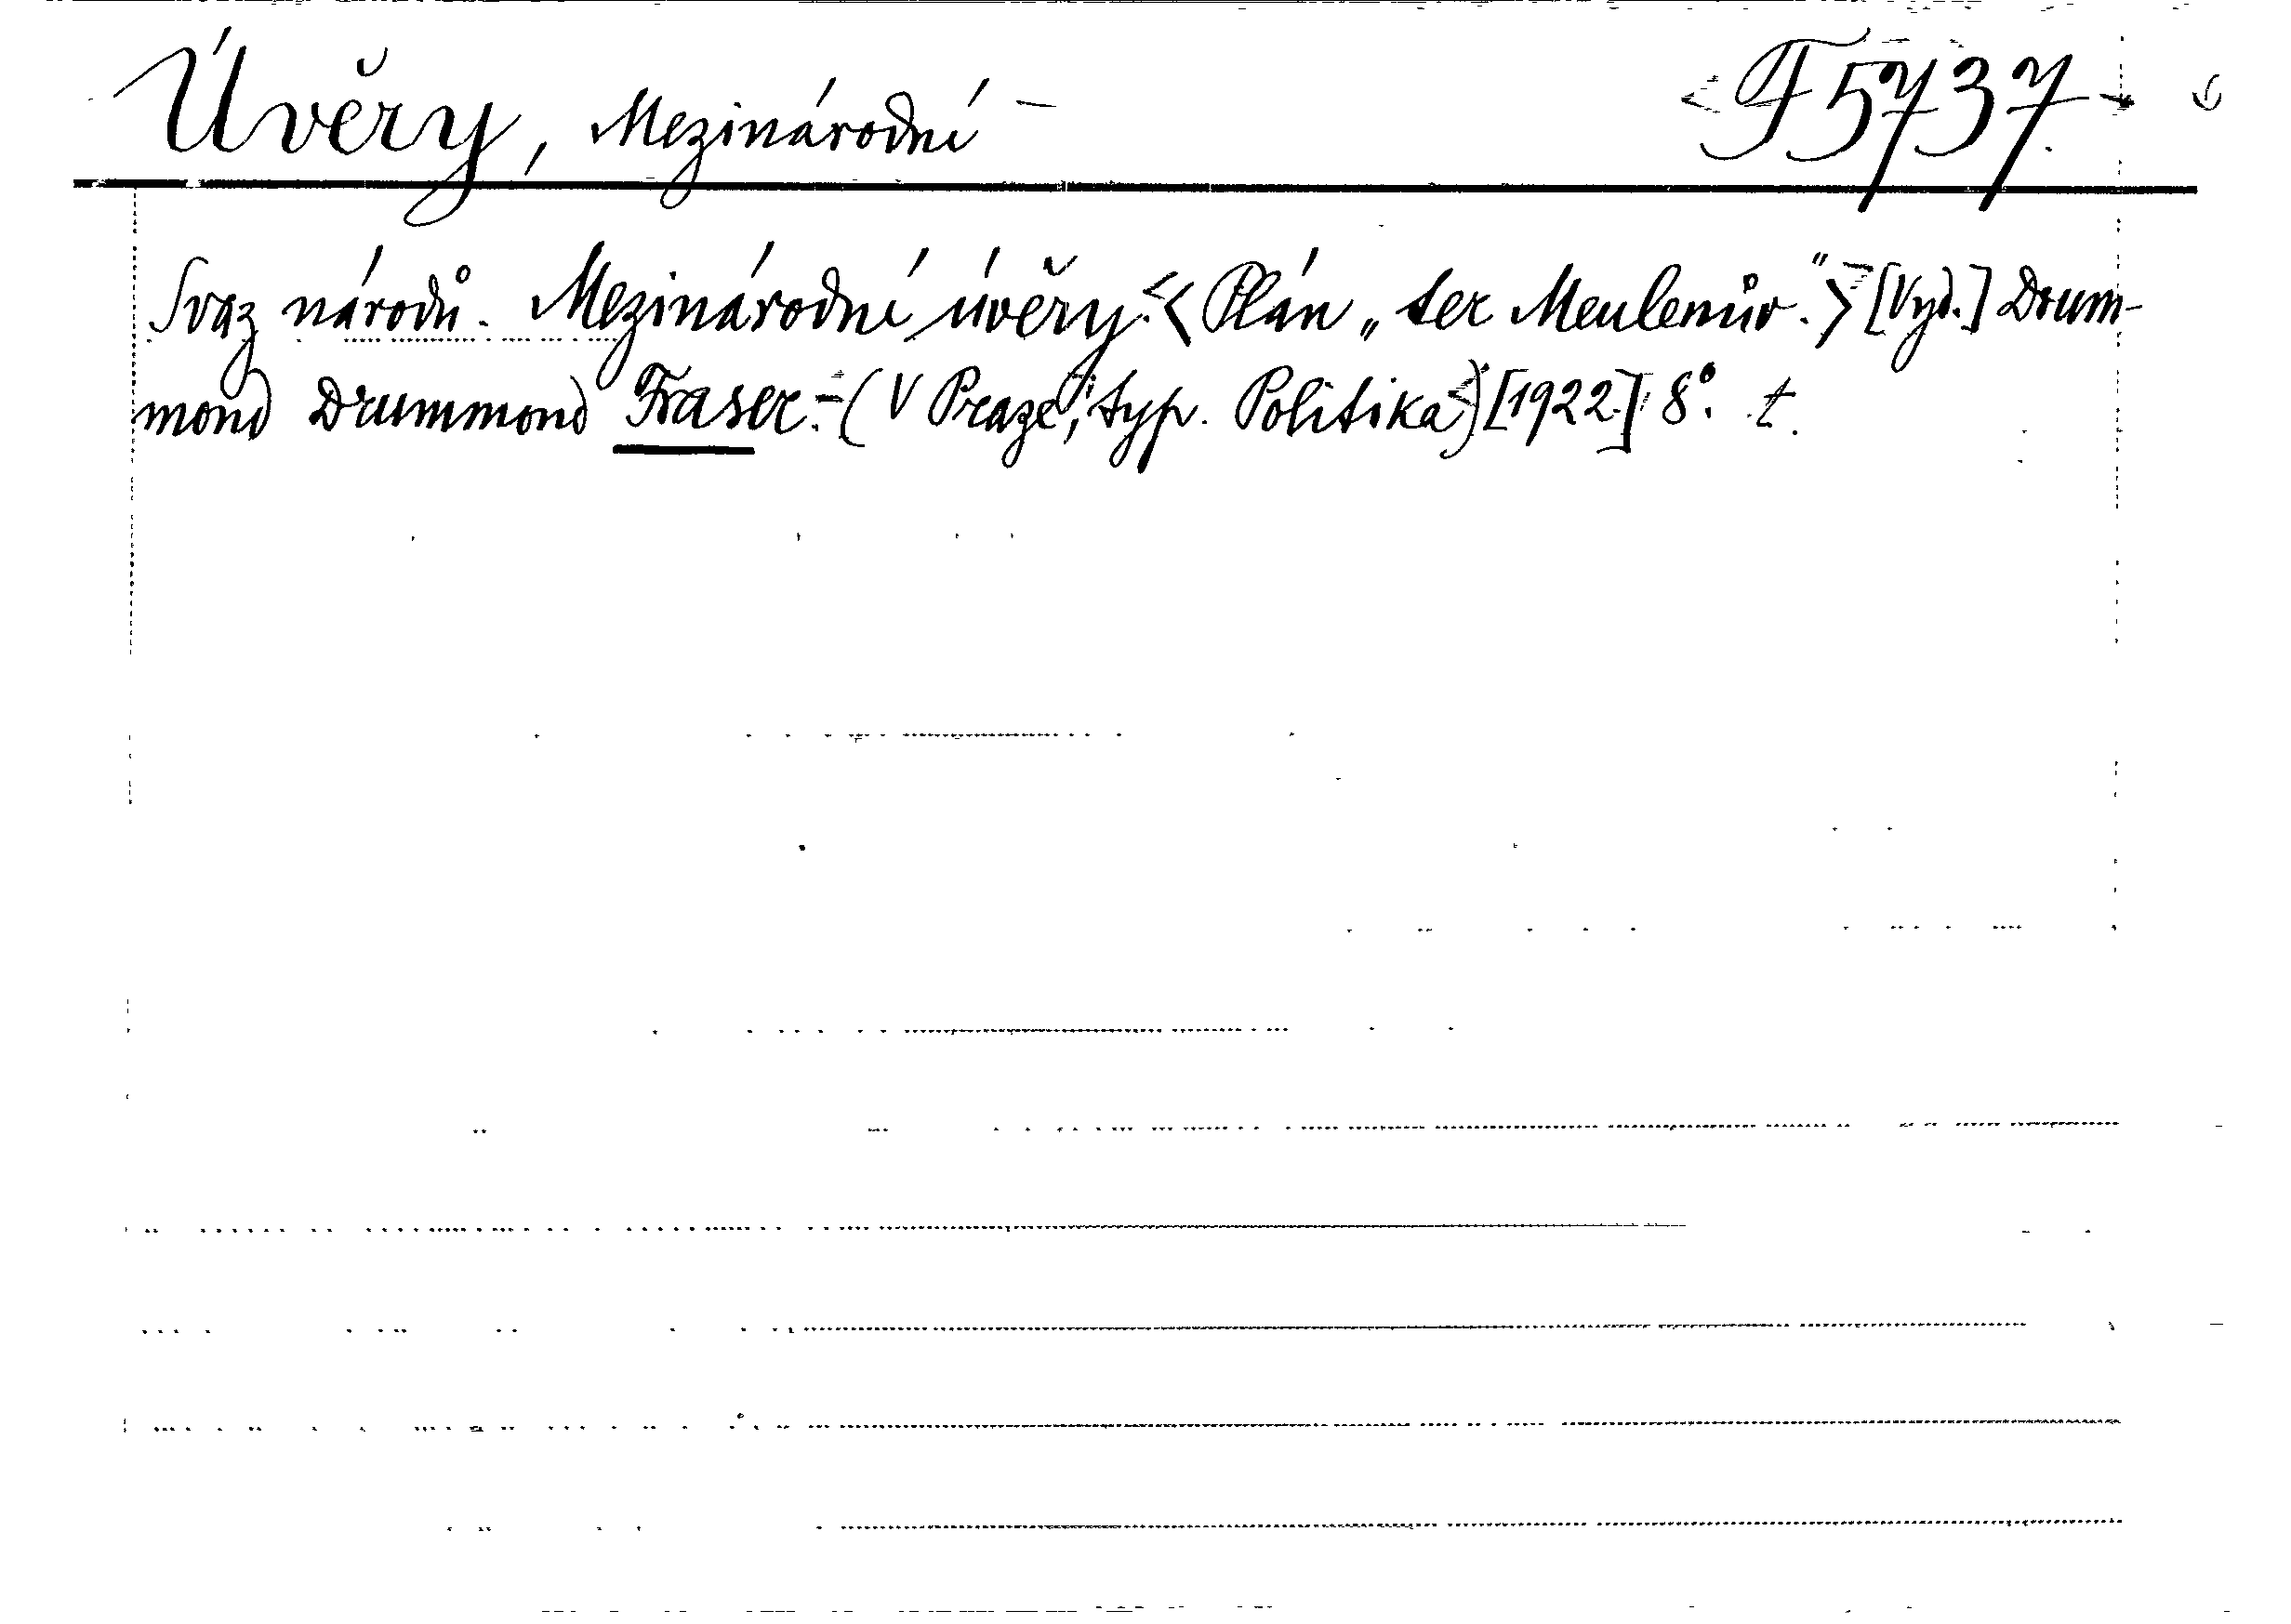 Úvěry, Mezinárodní — F 5737.
Svaz národů. Mezinárodní úvěry. < Plán „ter Meulenův.“ > [Vyd.] Drum-
mond Drummond Fraser. – ( V Praze, typ. Politika ) [1922.] 8°. t.